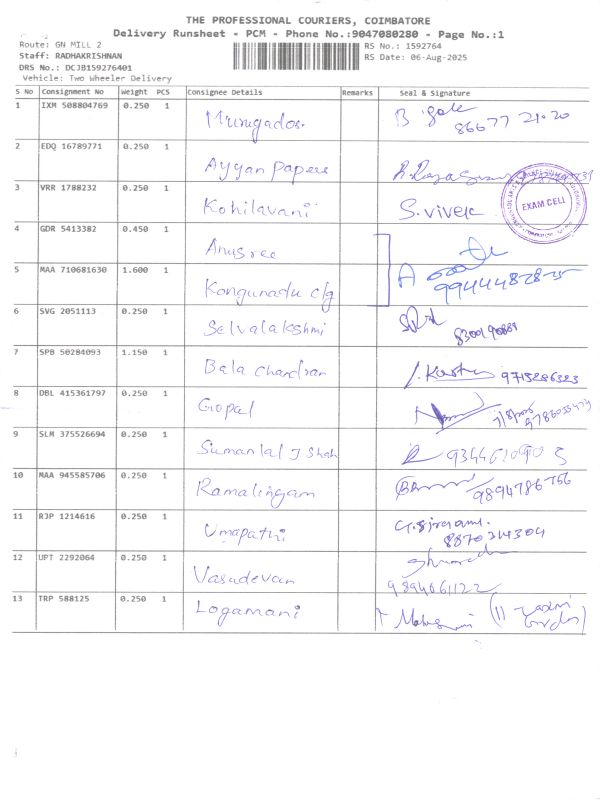 THE PROFESSIONAL COURIERS, COIMBATORE
Delivery Runsheet - PCM - Phone No.:9047080280 - Page No.:1
Route: GN MILL 2
RS No.: 1592764
Staff: RADHAKRISHNAN
RS Date: 06-Aug-2025
DRS No.: DCJB159276401
Vehicle: Two Wheeler Delivery
S No Consignment No Weight PCS Consignee Details Remarks Seal & Signature
1 IXM 508804769 0.250 1 Murugados. 86677 21020
2 EDQ 16789771 0.250 1 Ayyan Papers
3 VRR 1788232 0.250 1 Kohilavani S.vivek
EXAM CELL
4 GDR 5413382 0.450 1 Anusree
5 MAA 710681630 1.600 1 Kongunadu clg 9944482825
6 SVG 2051113 0.250 1 Selvalakshmi
7 SPB 50284093 1.150 1 Bala chandran 9715286323
8 DBL 415361797 0.250 1 Gopal
9 SLM 375526694 0.250 1 Sumanlal J Shah
10 MAA 945585706 0.250 1 Ramalingam 9894786766
11 RJP 1214616 0.250 1 Umapathi 8870314304
12 UPT 2292064 0.250 1 Vasudevan 9894061122
13 TRP 588125 0.250 1 Logamani